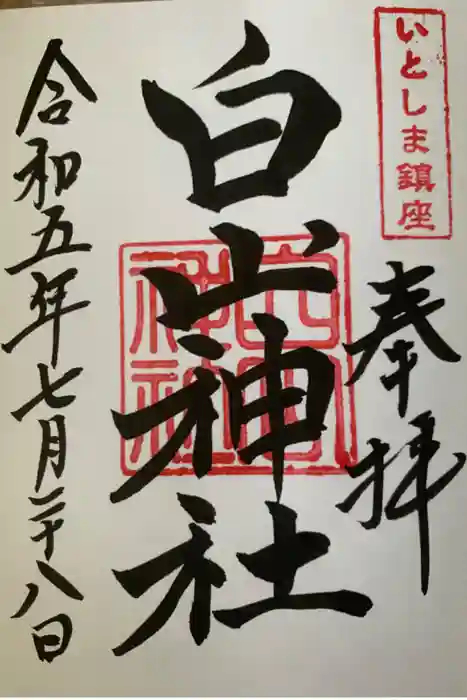 いとしま鎮座
奉拝
白山神社
白山
神社
令和五年七月二十八日